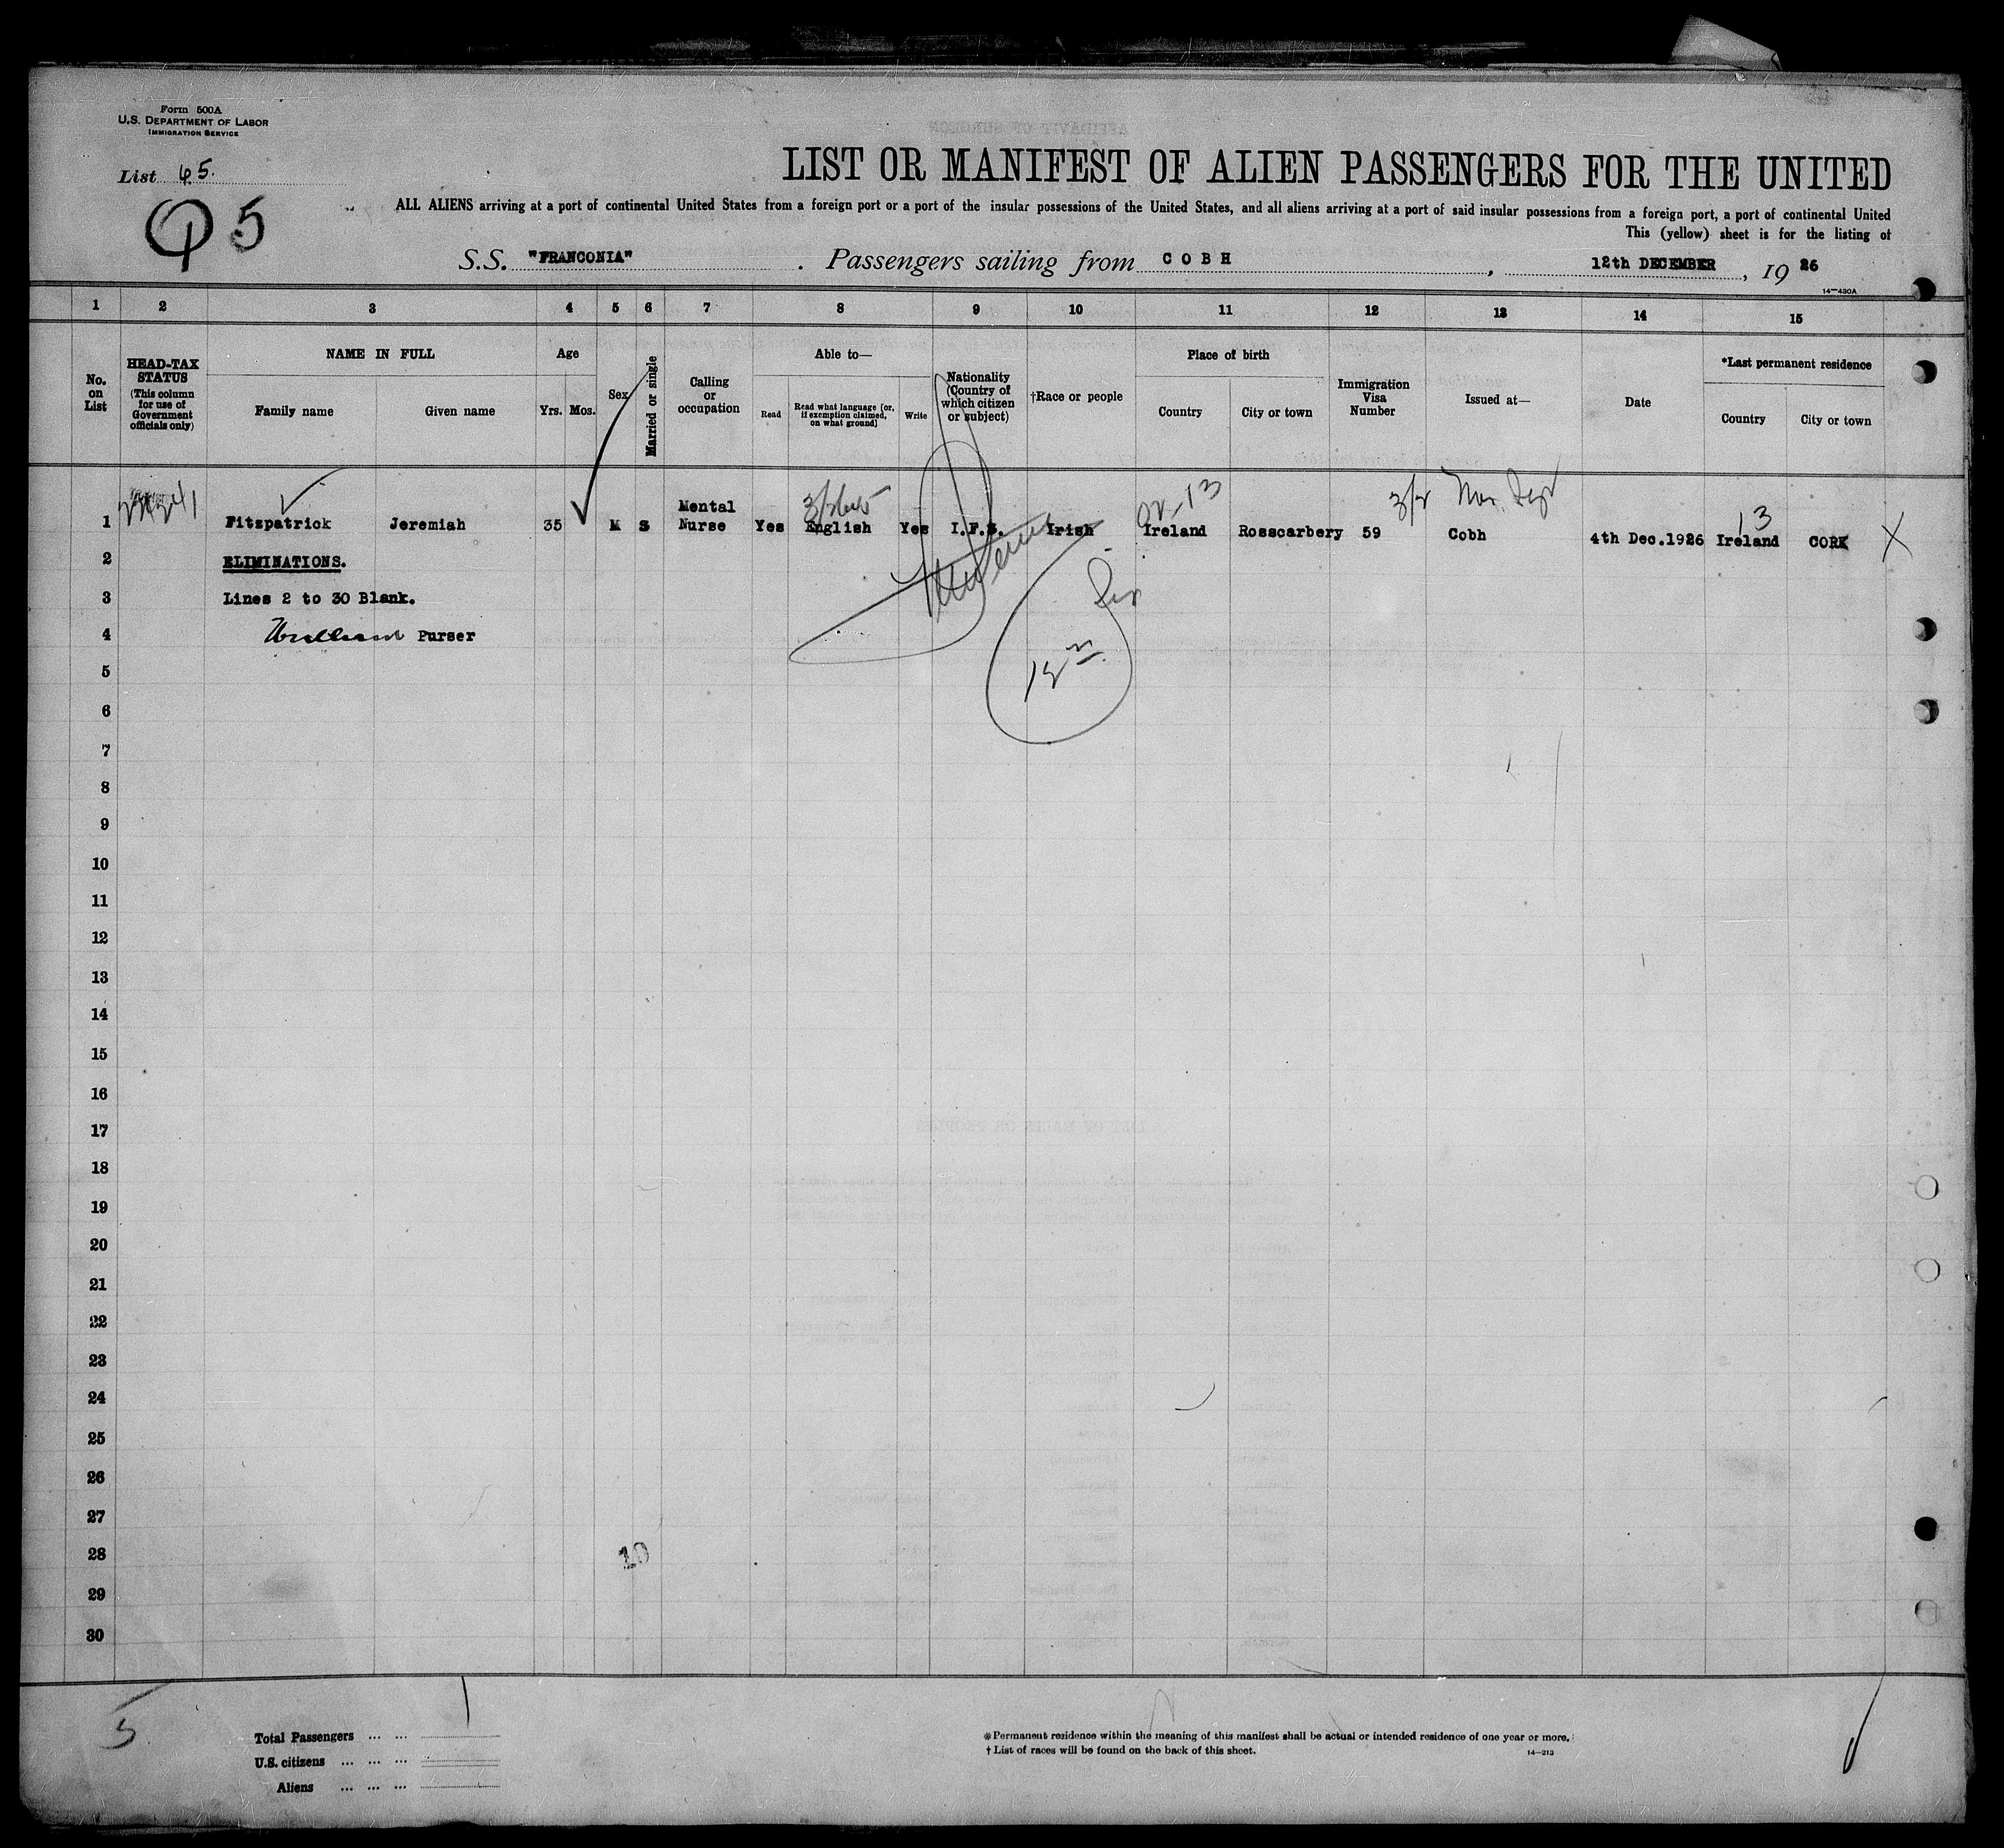 Form 500A
U.S. DEPARTMENT OF LABOR
IMMIGRATION SERVICE
List 45.
5
LIST OR MANIFEST OF ALIEN PASSENGERS FOR THE UNITED
ALL ALIENS arriving at a port of continental United States from a foreign port or a port of the insular possessions of the United States, and all aliens arriving at a port of said insular possessions from a foreign port, a port of continental United
This (yellow) sheet is for the listing of
S.S. "FRANCONIA" . Passengers sailing from COBH , 12th DECEMBER , 19 26
14—430A
1 2 3 4 5 6 7 8 9 10 11 12 13 14 15
No. on List
HEAD-TAX STATUS (This column for use of Government officials only)
NAME IN FULL
Family name Given name
Age
Yrs. Mos.
Sex
Married or single
Calling or occupation
Able to—
Read
Read what language [or, if exemption claimed, on what ground]
Write
Nationality (Country of which citizen or subject)
†Race or people
Place of birth
Country City or town
Immigration Visa Number
Issued at—
Date
*Last permanent residence
Country City or town
1 Fitzpatrick Jeremiah 35 M S Mental Nurse Yes English Yes I.F.S. Irish Ireland Rosscarbery 59 Cobh 4th Dec.1926 Ireland CORK X
13
2 ELIMINATIONS.
3 Lines 2 to 30 Blank.
4 Purser
5
6
7
8
9
10
11
12
13
14
15
16
17
18
19
20
21
22
23
24
25
26
27
28
29
30
10
5
Total Passengers ... ...
U.S. citizens ... ... ...
Aliens ... ... ...
*Permanent residence within the meaning of this manifest shall be actual or intended residence of one year or more.
† List of races will be found on the back of this sheet.
14—213